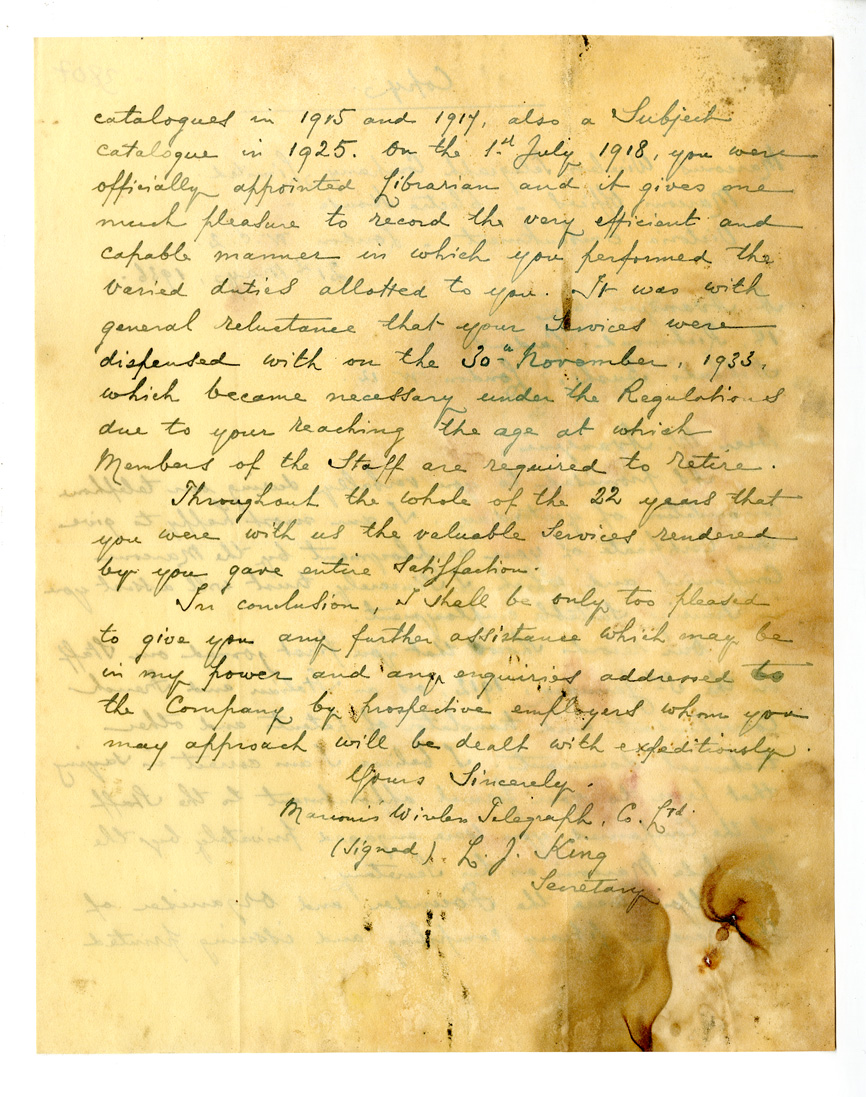 catalogues in 1915 and 1917, also a Subject
catalogue in 1925. On the 1st July 1918, you were
officially appointed Librarian and it gives me
much pleasure to record the very efficient and
capable manner in which you performed the
varied duties allotted to you. It was with
general reluctance that your Services were
dispensed with on the 30th November, 1933,
which became necessary under the Regulations
due to your reaching the age at which
Members of the Staff are required to retire.
Throughout the whole of the 22 years that
you were with us the valuable Services rendered
by you gave entire Satisfaction.
In conclusion, I shall be only too pleased
to give you any further assistance which may be
in my power and any enquiries addressed to
the Company by prospective employers whom you
may approach will be dealt with expeditiously.
Yours Sincerely.
Marconi's Wireless Telegraph. Co. Ltd
(Signed). L. J. King
Secretary